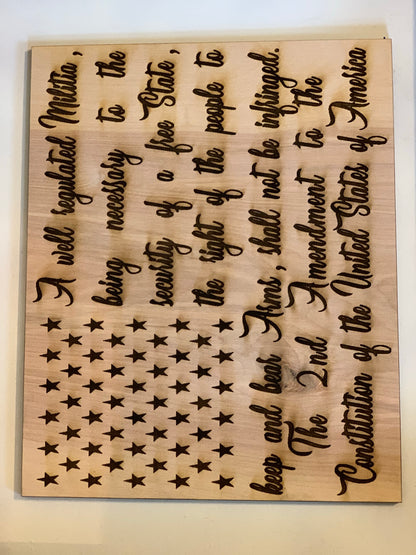 A well regulated Militia,
being necessary to the
security of a free State,
the right of the people to
keep and bear Arms, shall not be infringed.
The 2nd Amendment to the
Constitution of the United States of America